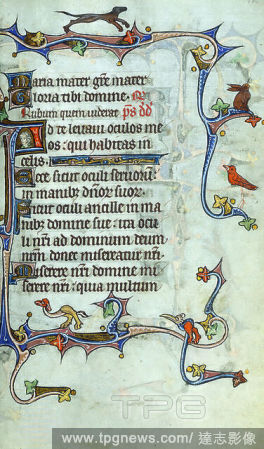 Maria mater gre mater
Gloria tibi domine. R
Rubum quem viderat ps dd
Ad te levavi oculos me
os: qui habitas in
celis.
Ecce sicut oculi servorum
in manib dnor suor.
Sicut oculi ancille in ma
nib domine sue: ita ocu
li nri ad dominum deum
nrm donec misereatur nri.
Miserere nri domine mi
serere nri: quia multum
TPG
www.tpgnews.com / 達志影像